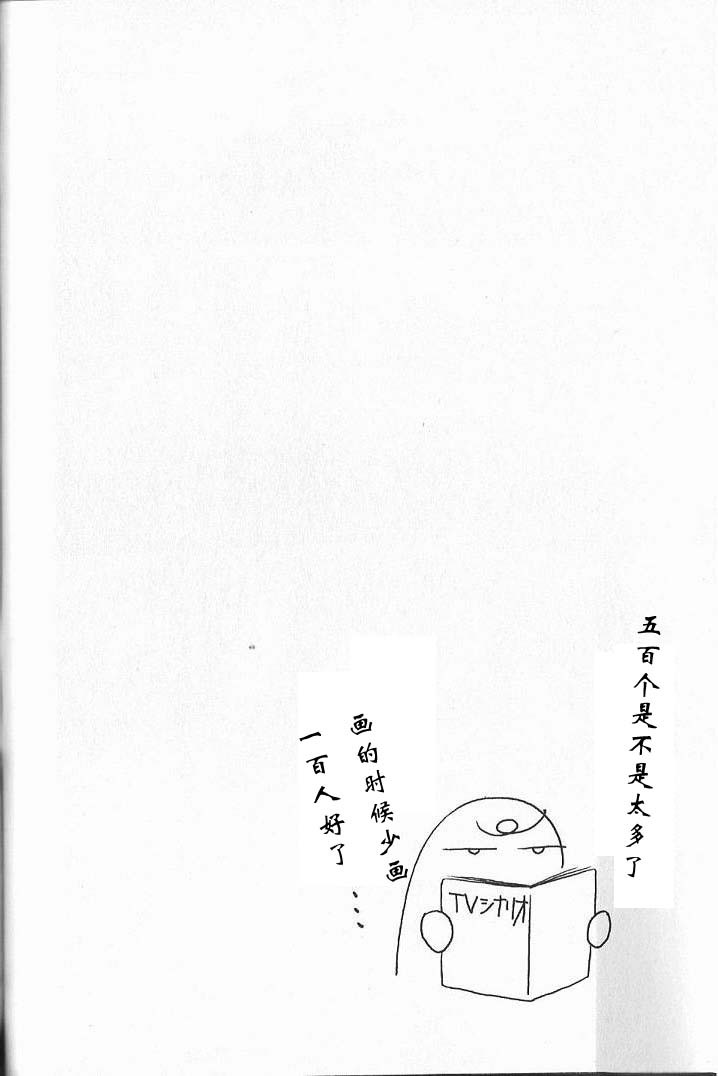 五百个是不是太多了
画的时候少画
一百人好了...
TVシナリオ